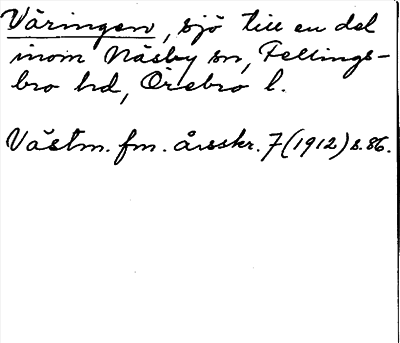 Väringen, sjö till en del
inom Näsby sn, Fellings-
bro hd, Örebro l.
Västm. fm. årsskr. 7 (1912) s. 86.